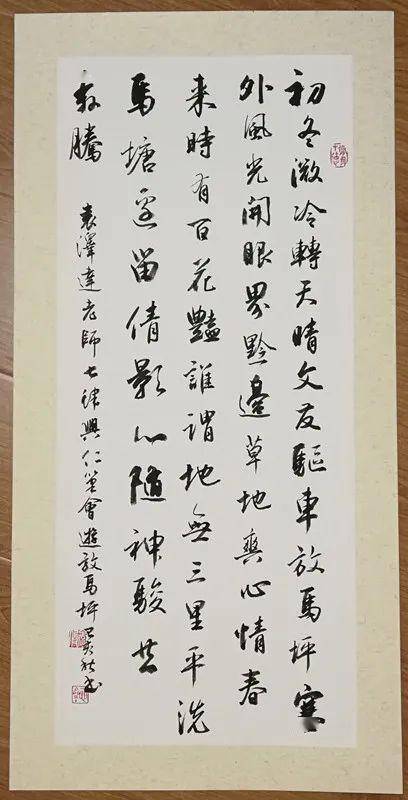 初冬微冷轉天晴文友驅車放馬坪寨
外風光開眼界黔邊草地爽心情春
来時有百花艷誰謂地無三里平洗
馬塘邊留倩影心隨神駿共
奔騰
袁澤達老師七律興仁筆會遊放馬坪 己亥秋书